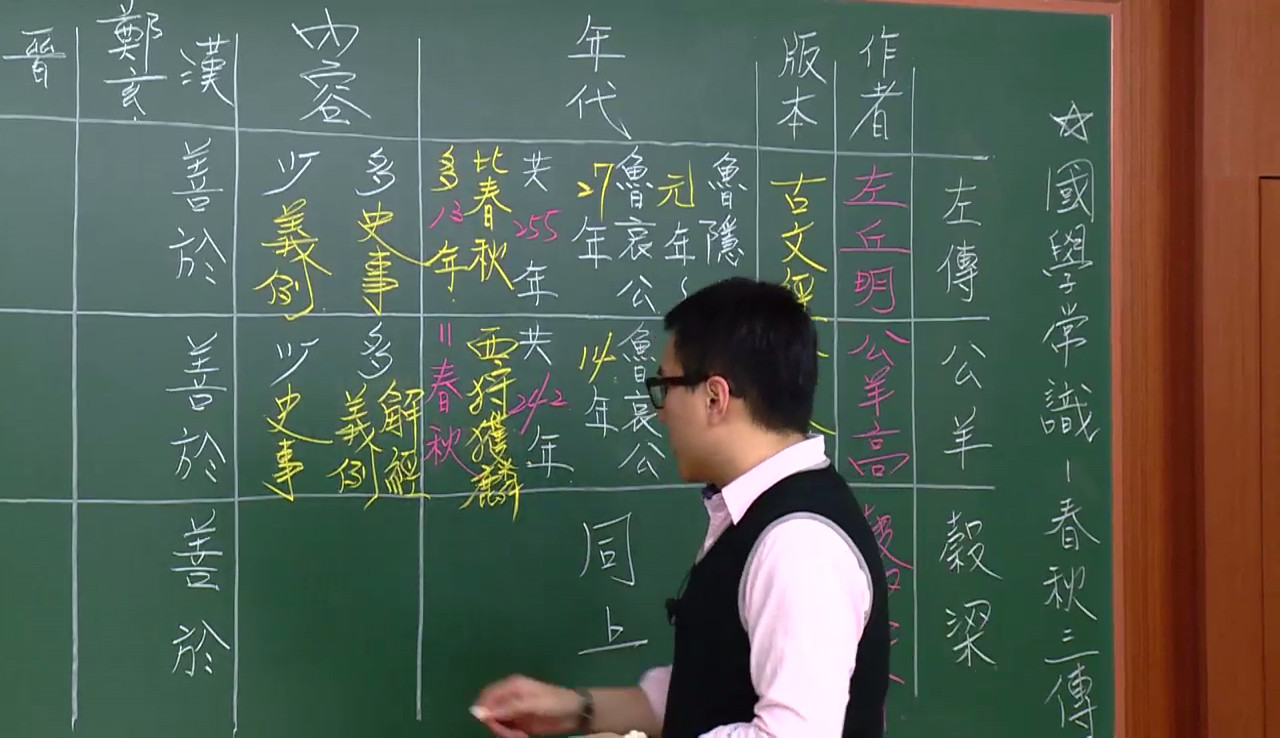 ☆國學常識-春秋三傳
左傳
公羊
穀梁
作者
左丘明
公羊高
版本
古文經
年代
魯隱
元年~
魯哀公
27年
共255年
比春秋
多13年
魯哀公
14年
共242年
西狩獲麟
=春秋
同上
內容
多史事
少義例
多解經
義例
少史事
漢
鄭玄
善於
善於
善於
晉